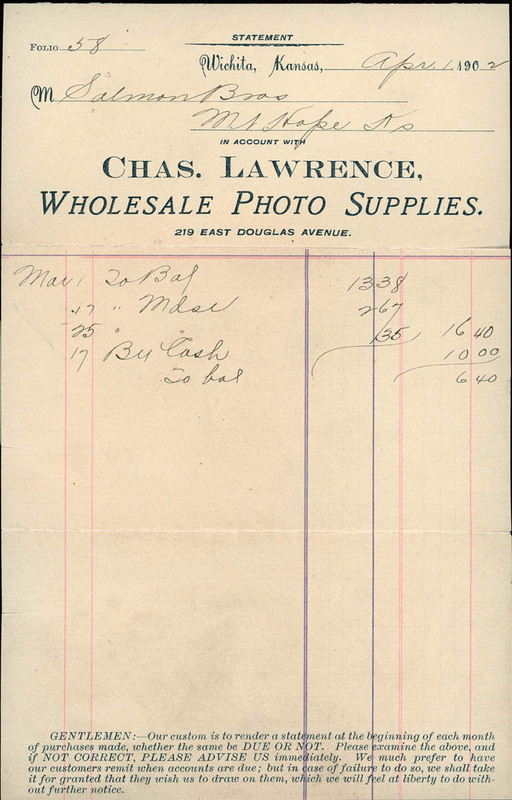 STATEMENT
FOLIO 58
Wichita, Kansas, Apr. 1, 1902
M Salmon Bros
Mt Hope Ks
IN ACCOUNT WITH
CHAS. LAWRENCE,
WHOLESALE PHOTO SUPPLIES.
219 EAST DOUGLAS AVENUE.
Mar 1 To Bal 13 38
17 " Mdse 2 67
25 " " 35 16 40
17 By Cash 10 00
To bal 6 40
GENTLEMEN:—Our custom is to render a statement at the beginning of each month
of purchases made, whether the same be DUE OR NOT. Please examine the above, and
if NOT CORRECT, PLEASE ADVISE US immediately. We much prefer to have
our customers remit when accounts are due; but in case of failure to do so, we shall take
it for granted that they wish us to draw on them, which we will feel at liberty to do with-
out further notice.